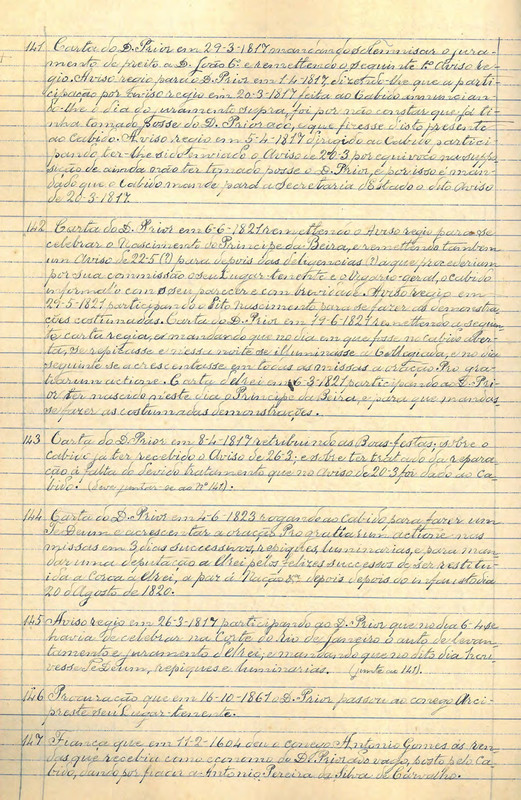 141 Carta do D. Prior em 29-3-1817 mandando solemnisar o jura-
mento de preito a D. João 6º e remettendo o seguinte 1º Aviso re-
gio. Aviso regio para o D. Prior em 1-4-1817, dizendo-lhe que a parti-
cipação por Aviso regio em 20-3-1817 feita ao Cabido annuncian-
do-lhe o dia do juramento supra, foi por não constar que já ti-
nha tomado posse do D. Priorado, e que fizesse disto presente
ao Cabido. Aviso regio em 5-4-1817 dirigido ao Cabido partici-
pando ter-lhe sido enviado o Aviso de 20-3 por equivoco na suppo-
sição de ainda não ter tomado posse o D. Prior, e por isso é man-
dado que o Cabido mande para a Secretaria d'Estado o dito Aviso
de 20-3-1817.
142 Carta do D. Prior em 6-6-1821 remettendo o Aviso regio para se
celebrar o Nascimento do Principe da Beira, e remettendo tambem
um Aviso de 22-5 (?) para depois das deligencias (?) a que procederiam
por sua commissão o seu Lugar-tenente e o Vigario-geral, o cabido
informal-o com o seu parecer e com brevidade. Aviso regio em
29-5-1821 participando o dito nascimento para se fazer as demonstra-
ções costumadas. Carta do D. Prior em 14-6-1821 remettendo a seguin-
te carta regia, e mandando que no dia em que fosse no cabido aber-
ta, se repicasse e nessa noite se illuminasse a Collegiada, e no dia
seguinte se acrescentasse em todas as missas a oração Pro gra-
tiarum actione. Carta d'elrei em 6-3-1821 participando ao D. Pri-
or ter nascido n'este dia o Principe da Beira, e para que mandas-
se fazer as costumadas demonstrações.
143 Carta do D. Prior em 8-4-1817 retribuindo as Boas-festas; sobre o
cabido já ter recebido o Aviso de 26-3, e sobre ter tratado da repara-
ção á falta do devido tratamento que no Aviso de 20-3 foi dado ao Ca-
bido. (Deve juntar-se ao nº 141).
144 Carta do D. Prior em 4-6-1823 rogando ao Cabido para fazer um
Te Deum e acrescentar a oração Pro gratiarum actione nas
missas em 3 dias successivos, repiques, luminarias, e para man-
dar uma deputação a elrei pelos felizes successos de ser restitu-
ida a Coroa a elrei, a paz á Nação &ª depois depois do infausto dia
20 d'Agosto de 1820.
145 Aviso regio em 26-3-1817 participando ao D. Prior que no dia 6-4 se
havia de celebrar na Corte do Rio de Janeiro o auto de levan-
tamento e juramento d'elrei; e mandando que no dito dia hou-
vesse Te Deum, repiques e luminarias. (junto ao 141).
146 Procuração que em 16-10-1861 o D. Prior passou ao conego Arci-
preste seu Lugar-tenente.
147 Fiança que, em 11-2-1604 deu o conego Antonio Gomes ás ren-
das que recebia como economo do D. Priorado vago, posto pelo Ca-
bido, dando por fiador a Antonio Pereira da Silva de Carvalho.